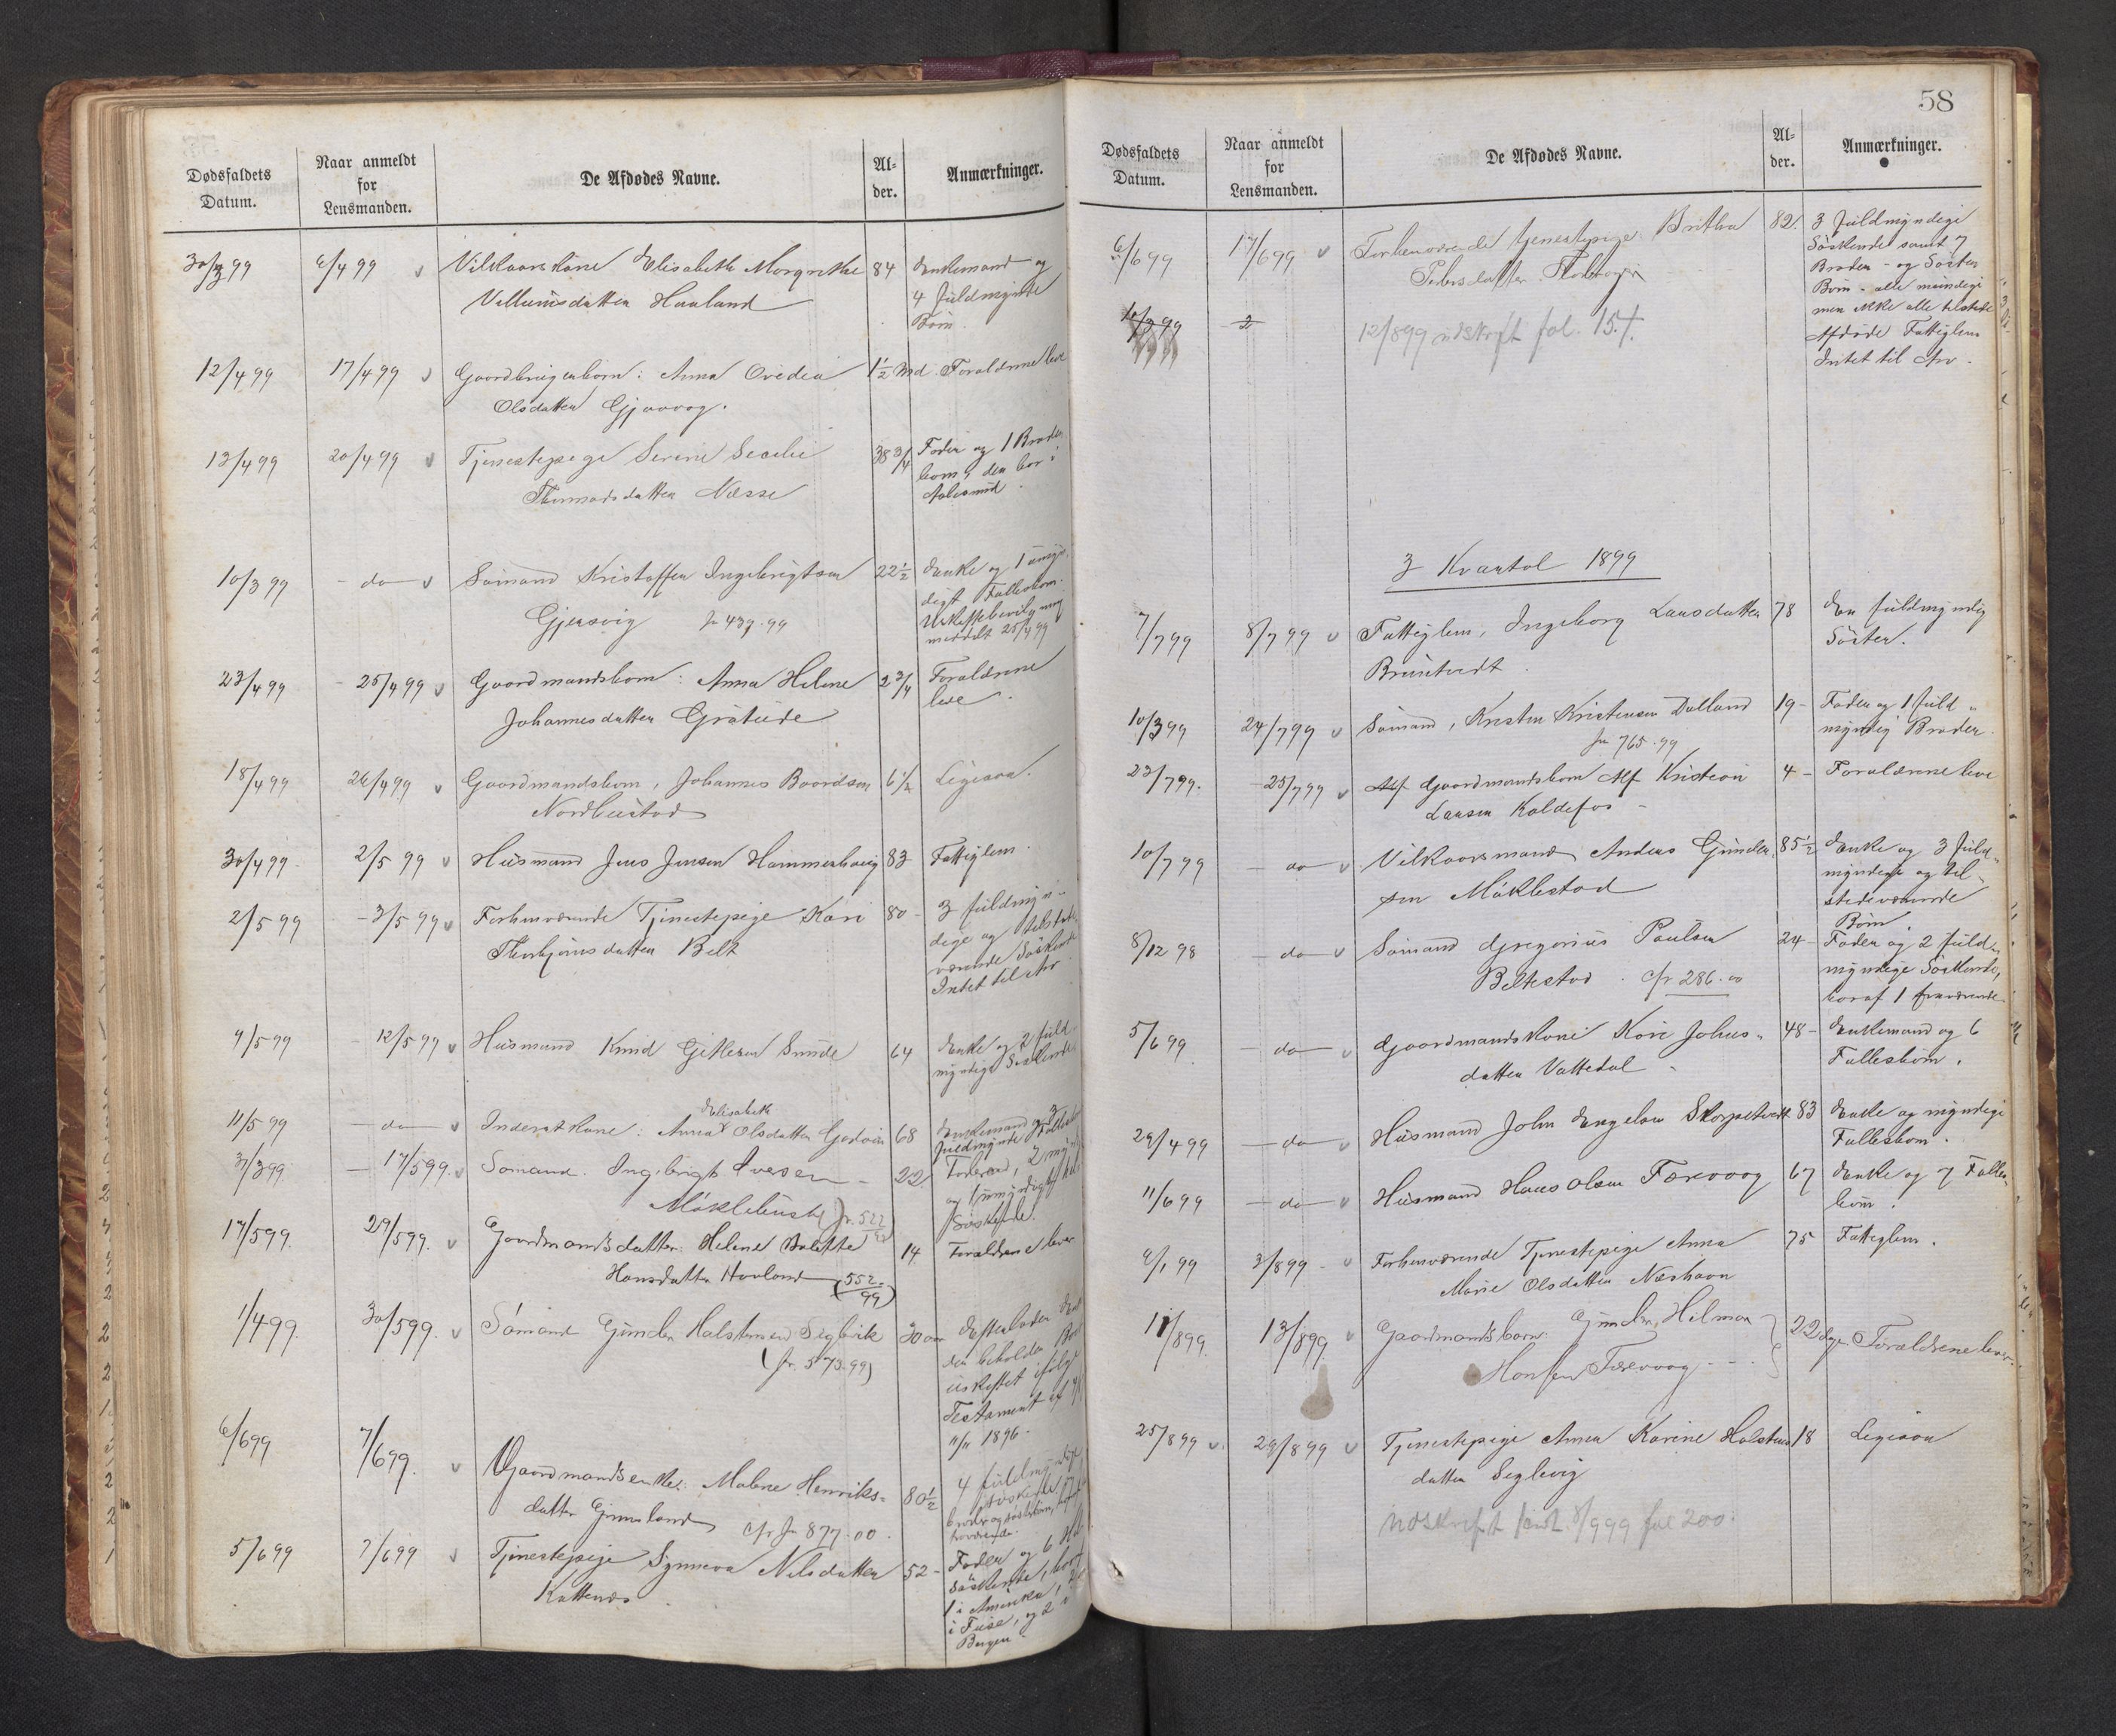 Dødsfaldets
Datum.
Naar anmeldt
for
Lensmanden.
De Afdødes Navne.
Al-
der.
Anmærkninger.
30/3 99 6/4 99 Vilkaarskone Elisabeth Margrethe 84 Enkemand og
Villumsdatter Haaland 4 fuldmynde
Børn.
12/4 99 17/4 99 Gaardbrugerbarn: Anna Ovedia 1½ Md. Forældrene leve
Olsdatter Gjøvaag.
13/4 99 20/4 99 Tjenestepige Serine Secelie 38 3/4 Fader og 1 Broder
Thormodsdatter Næsse barn, der bor i
Aalesund.
10/3 99 - do - Sømand Kristoffer Ingebrigtsen 22½ Enke og 1 umyn-
Gjersvig Jr 439.99 digt Fællesbarn.
Uskiftebevilgning
meddelt 25/4 99
23/4 99 - 25/4 99 Gaardmandsbarn: Anna Helene 2 3/4 Forældrene
Johannesdatter leve.
18/4 99 26/4 99 Gaardmandsbarn, Johannes Baardsen 6½ Ligesaa.
Nordbustad
30/4 99 2/5 99 Husmand Jens Jensen Hammerhaug 83 Fattiglem.
2/5 99 - 3/5 99 Forhenværende Tjenestepige Kari 80 - 3 fuldmyn-
Thorbjørnsdatter Belt dige og tilstede
værende Søskende
Intet til Arv.
9/5 99 - 12/5 99 Husmand Knud Gitlesen Sunde 64 Enke og 2 fuld-
myndige Søskende.
Elisabeth
11/5 99 - do - Inderstkone: Anna Olsdatter 68 Enkemand og 3
fuldmyndte
3/3 99 - 17/5 99. Sømand. Ingebrigt Iversen - 22 Forældre, 2 mynd
Møklebust (Jr. 522 Søskende.
17/5 99. 29/5 99. Gaardmandsdatter: Helene Bolette 14 Forældrene lever
Hansdatter Havland (552/99)
1/4 99. 30/5 99. Sømand Gunder Halstensen Seglvik 30 aar Efterlader Enke
(Jr. 573.99) der beholder Boet
uskiftet ifølge
Testament af
11/11 1896.
6/6 99 7/6 99. Gaardmandsenke: Malene Henriks- 80½ 4 fuldmyndige
datter Grimsland cfr Jr 877.00. Søskende
5/6 99 7/6 99 Tjenestepige Synneva Nilsdatter 52 - Fader og 6 Hel-
Kattenes Søskende, hvoraf
1 i Amerika, 2
i Fuse, og 2 i
Bergen.
58
Dødsfaldets
Datum.
Naar anmeldt
for
Lensmanden.
De Afdødes Navne.
Al-
der.
Anmærkninger.
6/6 99 17/6 99 Forhenværende tjenestepige: Britha 82. 3 fuldmyndige
Pedersdatter Søskende samt 7
Broder- og Søster
Børn - alle myndige
men ikke alle tilstede
12/8 99 udskrift fol. 154. Afdøde Fattiglem
Intet til Arv.
3 Kvartal 1899
7/7 99 8/7 99 Fattiglem, Ingeborg Larsdatter 78 En fuldmyndig
Bruntvedt. Søster.
10/3 99 24/7 99 Sømand, Kristen Kristensen Dalland 19 - Fader og 1 fuld-
Jr 765.99 myndig Broder.
23/7 99. - 25/7 99 Alf Gaardmandsbarn Alf Kristian 4 - Forældrene leve
Larsen Koldefos -
10/7 99 - do - Vilkaarsmand Anders Gunder- 85½ Enke og 3 fuld-
sen Møklestad myndige og til-
stedeværende
Børn.
8/12 98 - do - Sømand Gregorius Paulsen 24 - Fader og 2 fuld-
Beltestad. cfr. 286.00 myndige Søskende,
hvoraf 1 fraværende
5/6 99 - do - Gaardmandskone Kari Johns- 48 - Enkemand og 6
datter Vattedal - Fællesbørn.
29/4 99 - do - Husmand John Engelsen Skorpetvedt 83 Enke og myndige
Fællesbarn.
11/6 99 - do - Husmand Hans Olsen Færevaag 67 Enke og 7 Fælles-
børn.
6/1 99 3/8 99 - Forhenværende Tjenestepige Anna 75 Fattiglem.
Marie Olsdatter Næshavn
11/8 99. 13/8 99 Gaardmandsbarn: Gunder Hilmar 22 dge. Forældrene lever.
Hansen Færevaag - - -
25/8 99 29/8 99 Tjenestepige Anna Karine Halstens 18 Ligesaa
datter Seglevig
udskrift 8/9 99 fol 200.